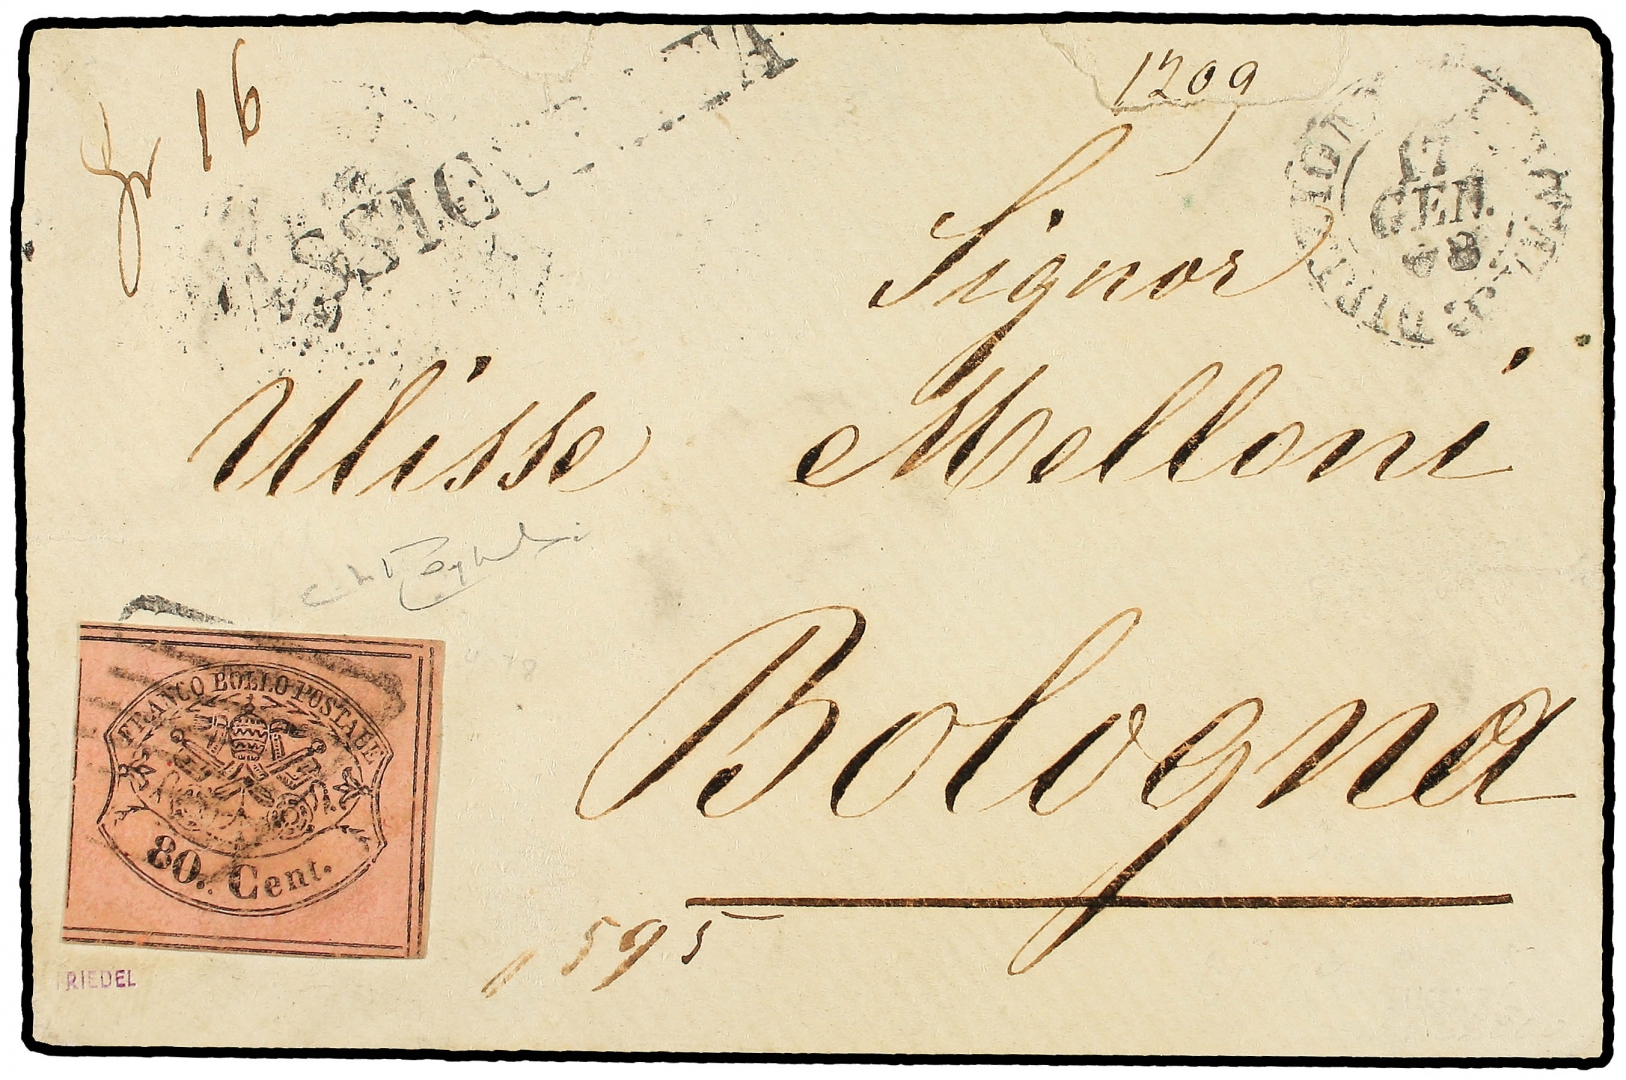 gr 16
1209
17
GEN.
68
Signor
Ulisse Melloni
Bologna
FRANCO BOLLO POSTALE
80. Cent.
595
RIEDEL